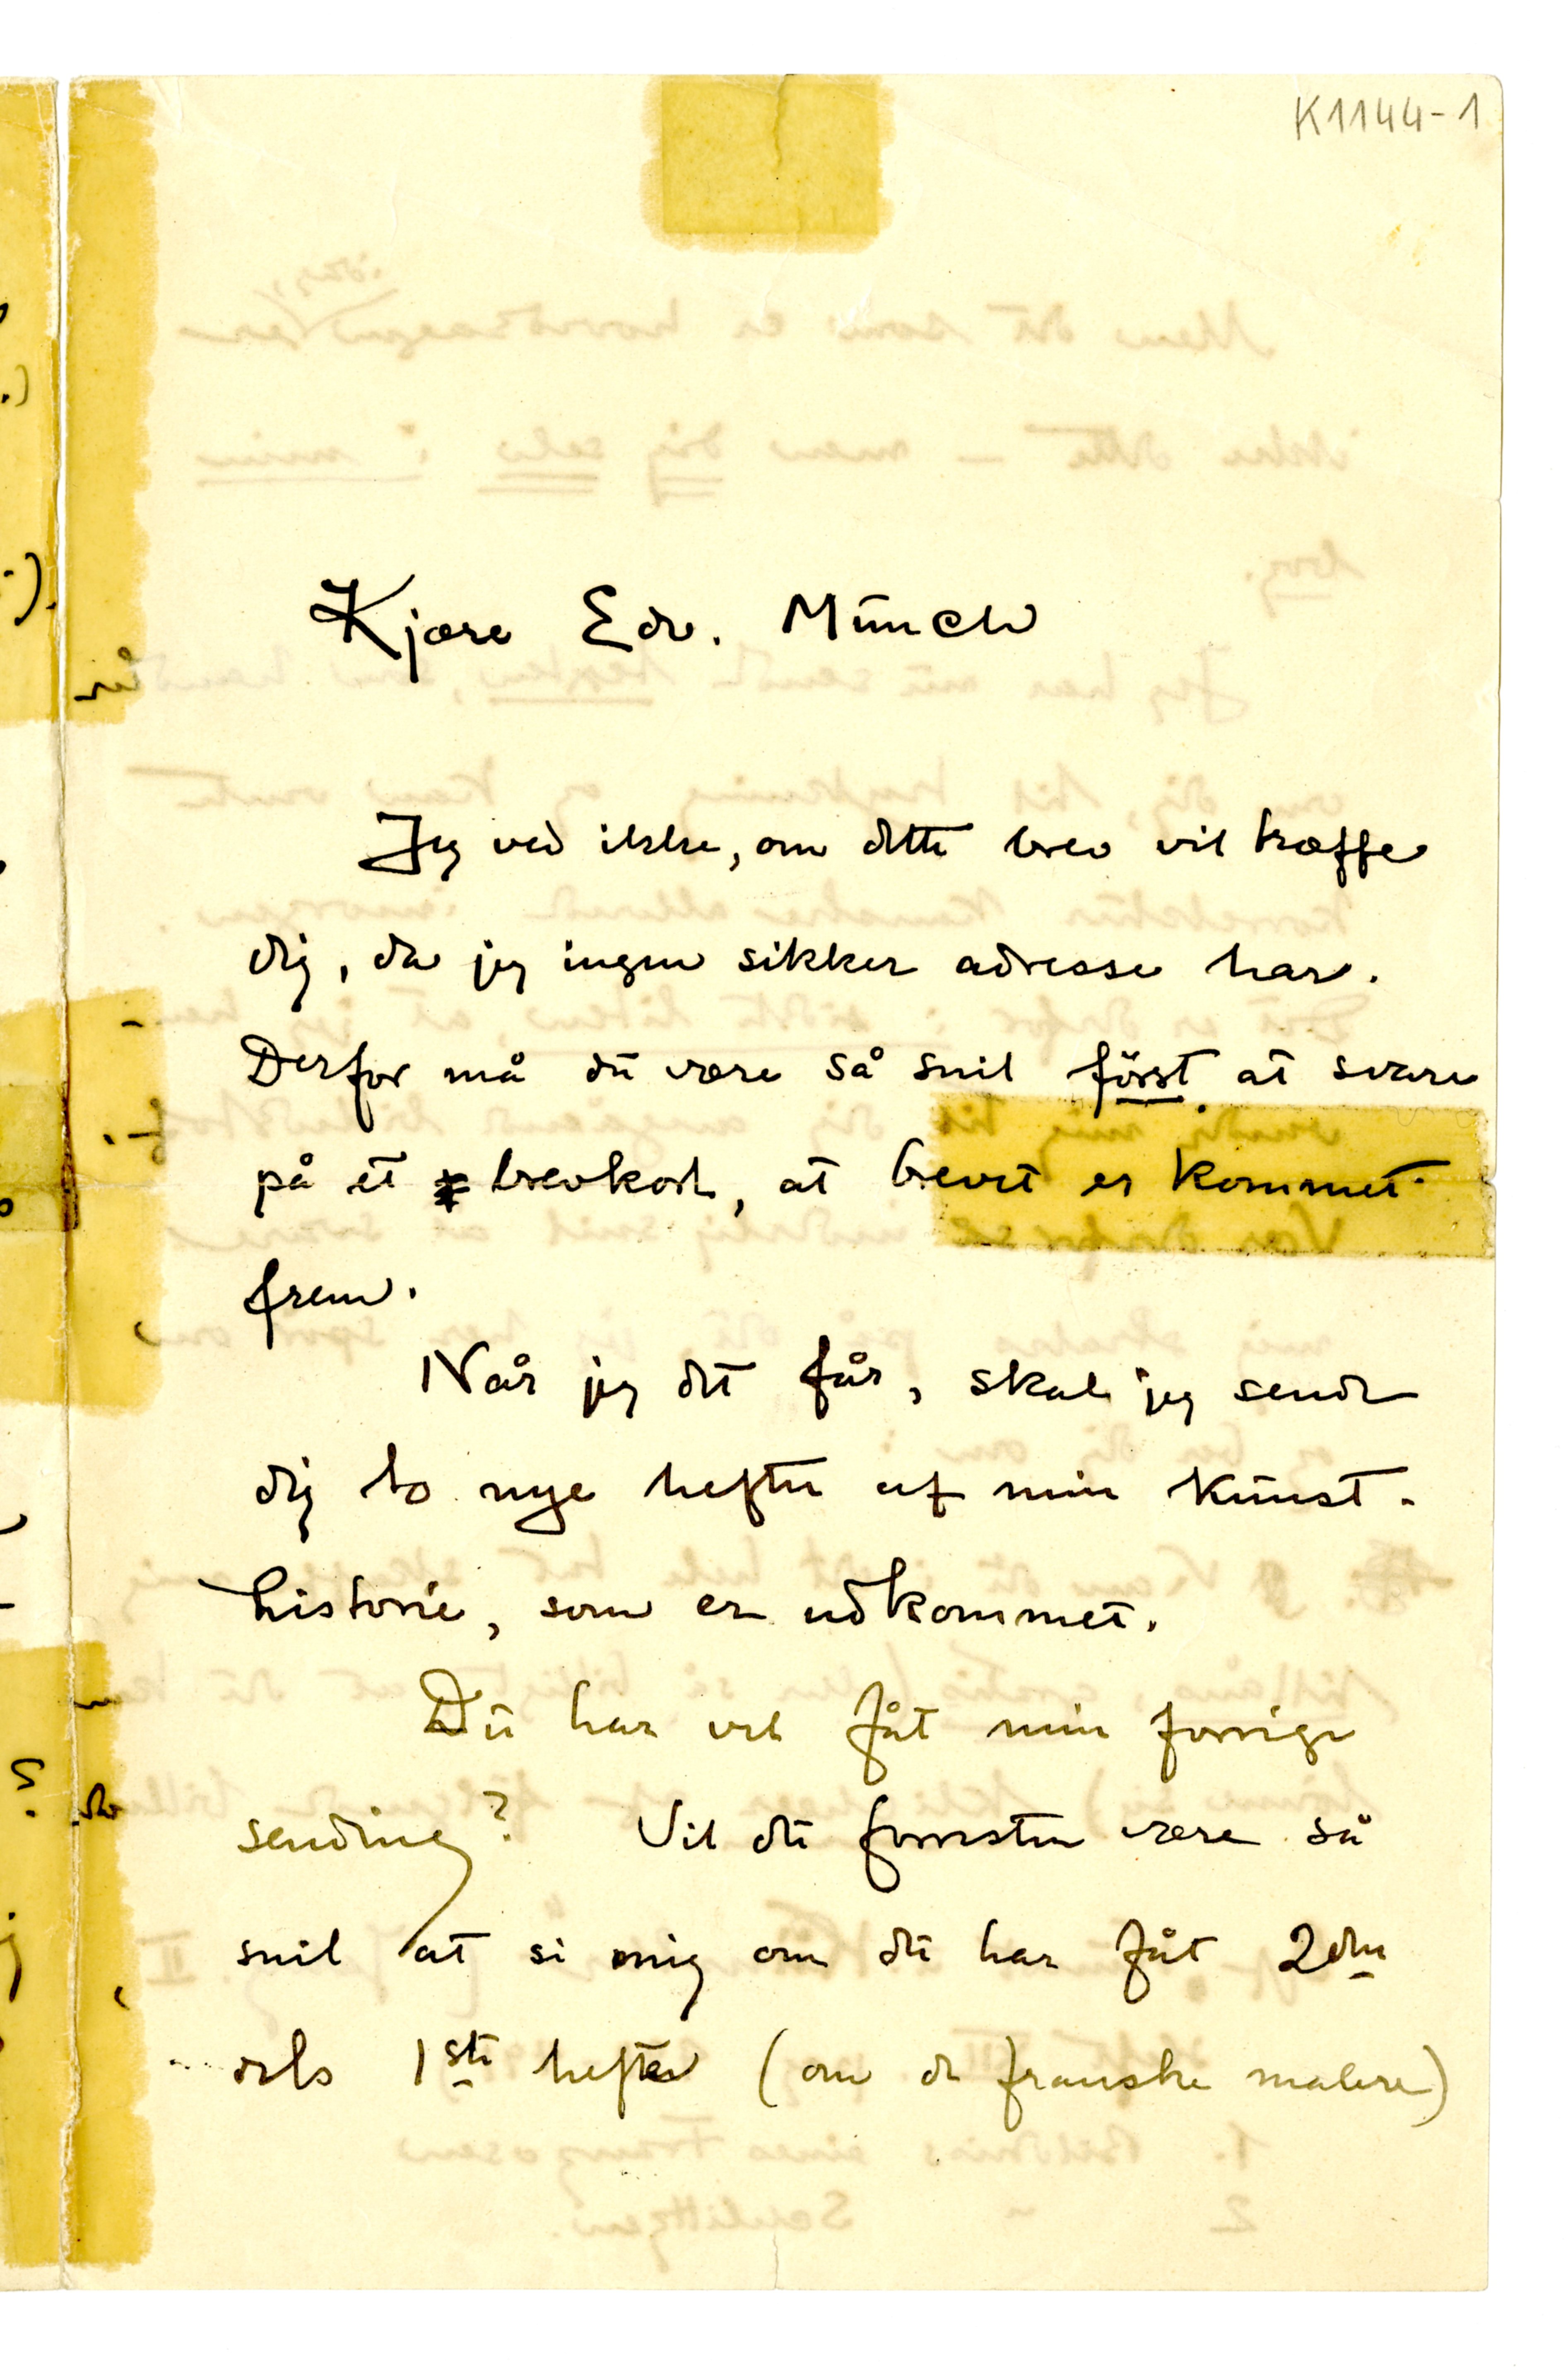 K1144-1
Kjære Edv. Münch
Jeg ved ikke, om dette brev vil træffe
dig, da jeg ingen sikker adresse har.
Derfor må dü være så snil först at svare
på et brevkort, at brevet er kommet
frem.
Når jeg det får, skal jeg sende
dig to nye hefter af min künst-
historie, som er udkommet.
Dü har vel fåt min forrige
sending? Vil dü forresten være så
snil at si mig om dü har fåt 2den
dels 1ste hefte (om de franske malere)